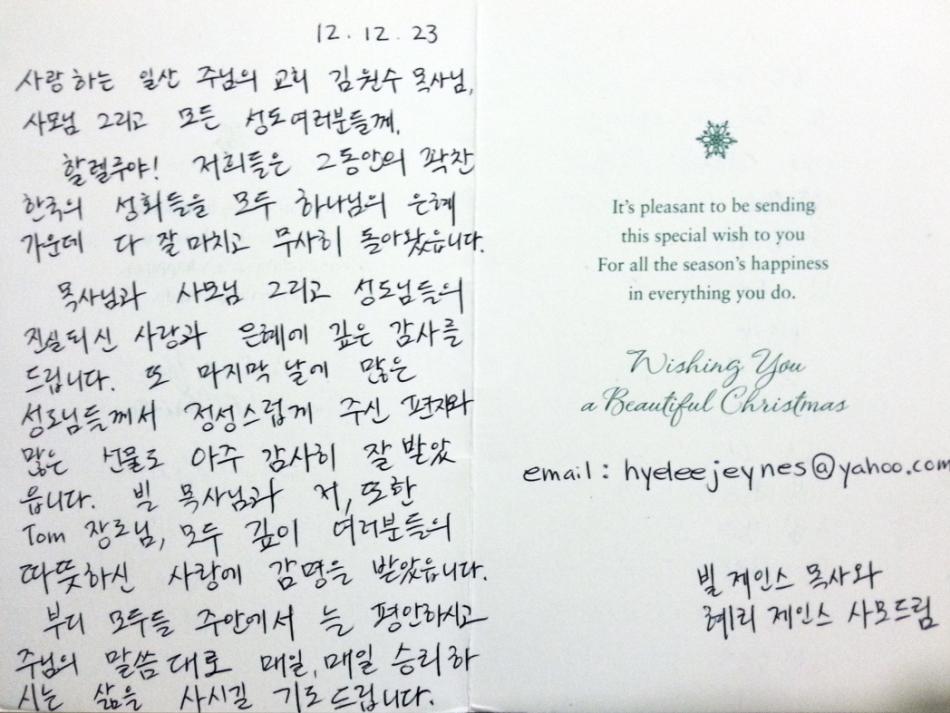 12. 12. 23
사랑하는 일산 주님의 교회 김원수 목사님,
사모님 그리고 모든 성도여러분들께,
할렐루야! 저희들은 그동안의 꽉찬
한국의 성회들을 모두 하나님의 은혜
가운데 다 잘 마치고 무사히 돌아왔읍니다.
목사님과 사모님 그리고 성도님들의
진실되신 사랑과 은혜에 깊은 감사를
드립니다. 또 마지막 날에 많은
성도님들께서 정성스럽게 주신 편지와
많은 선물도 아주 감사히 잘 받았
읍니다. 빌 목사님과 저, 또한
Tom 장로님, 모두 깊이 여러분들의
따뜻하신 사랑에 감명을 받았읍니다.
부디 모두들 주안에서 늘 평안하시고
주님의 말씀대로 매일, 매일 승리하
시는 삶을 사시길 기도드립니다.
It's pleasant to be sending
this special wish to you
For all the season's happiness
in everything you do.
Wishing You
a Beautiful Christmas
email : hyeleejeynes@yahoo.com
빌 제인스 목사와
혜리 제인스 사모드림